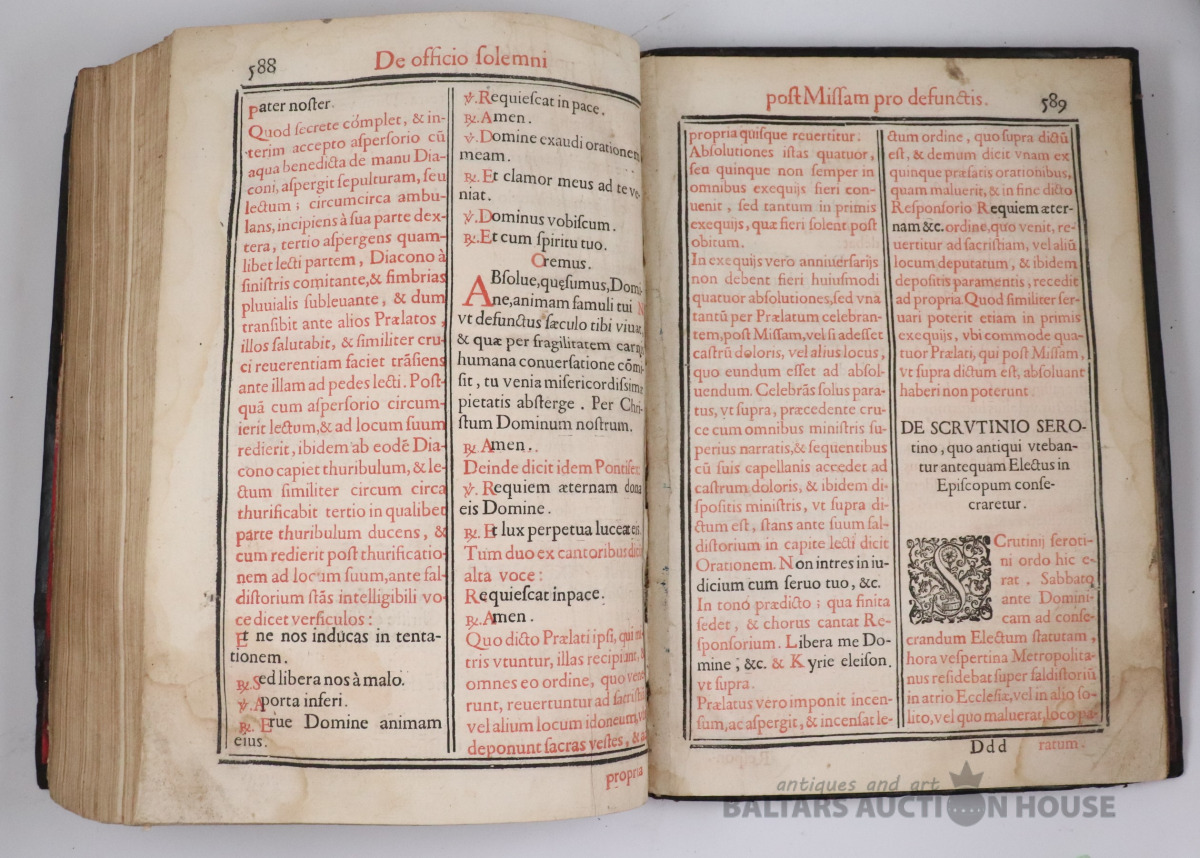 588
De officio ſolemni
Pater noſter.
Quod ſecrete cõplet, & in-
terim accepto aſperſorio cũ
aqua benedicta de manu Dia-
coni, aſpergit ſepulturam, ſeu
lectum; circumcirca ambu-
lans, incipiens à ſua parte dex-
tera, tertio aſpergens quam-
libet lecti partem, Diacono à
ſiniſtris comitante, & fimbrias
pluuialis ſubleuante, & dum
tranſibit ante alios Prælatos,
illos ſalutabit, & ſimiliter cru-
ci reuerentiam faciet trãſiens
ante illam ad pedes lecti. Poſt-
quã cum aſperſorio circum-
ierit lectum, & ad locum ſuum
redierit, ibidem ab eodẽ Dia-
cono capiet thuribulum, & le-
ctum ſimiliter circum circa
thurificabit tertio in qualibet
parte thuribulum ducens, &
cum redierit poſt thurificatio-
nem ad locum ſuum, ante fal-
diſtorium ſtãs intelligibili vo-
ce dicet verſiculos:
Et ne nos inducas in tenta-
tionem.
℟. Sed libera nos à malo.
℣. A porta inferi.
℟. Erue Domine animam
eius.
℣. Requieſcat in pace.
℟. Amen.
℣. Domine exaudi orationem
meam.
℟. Et clamor meus ad te ve-
niat.
℣. Dominus vobiſcum.
℟. Et cum ſpiritu tuo.
Oremus.
ABſolue, quęſumus, Domi-
ne, animam famuli tui N
vt defunctus ſæculo tibi viuat,
& quæ per fragilitatem carnis
humana conuerſatione cõmi-
ſit, tu venia miſericordiſſimæ
pietatis abſterge. Per Chri-
ſtum Dominum noſtrum.
℟. Amen.
Deinde dicit idem Pontifex:
℣. Requiem æternam dona
eis Domine.
℟. Et lux perpetua luceat eis.
Tum duo ex cantoribus dicunt
alta voce:
Requieſcat in pace.
℟. Amen.
Quo dicto Prælati ipſi, qui mi-
tris vtuntur, illas recipiunt, &
omnes eo ordine, quo vene-
runt, reuertuntur ad ſacriſtiã
vel alium locum idoneum, vbi
deponunt ſacras veſtes, & ad
propria
poſt Miſſam pro defunctis.
589
propria quiſque reuertitur.
Abſolutiones iſtas quatuor,
ſeu quinque non ſemper in
omnibus exequijs fieri con-
uenit, ſed tantum in primis
exequijs, quæ fieri ſolent poſt
obitum.
In exequijs vero anniuerſarijs
non debent fieri huiuſmodi
quatuor abſolutiones, ſed vna
tantũ per Prælatum celebran-
tem, poſt Miſſam, vel ſi adeſſet
caſtrũ doloris, vel alius locus,
quo eundum eſſet ad abſol-
uendum. Celebrãs ſolus para-
tus, vt ſupra, præcedente cru-
ce cum omnibus miniſtris ſu-
perius narratis, & ſequentibus
cũ ſuis capellanis accedet ad
caſtrum doloris, & ibidem di-
ſpoſitis miniſtris, vt ſupra di-
ctum eſt, ſtans ante ſuum fal-
diſtorium in capite lecti dicit
Orationem. Non intres in iu-
dicium cum ſeruo tuo, &c.
In tono prædicto; qua finita
ſedet, & chorus cantat Re-
ſponſorium. Libera me Do-
mine, &c. & Kyrie eleiſon.
vt ſupra.
Prælatus vero imponit incen-
ſum, ac aſpergit, & incenſat le-
ctum ordine, quo ſupra dictũ
eſt, & demum dicit vnam ex
quinque præfatis orationibus,
quam maluerit, & in fine dicto
Reſponſorio Requiem æter-
nam &c. ordine, quo venit, re-
uertitur ad ſacriſtiam, vel aliũ
locum deputatum, & ibidem
depoſitis paramentis, recedit
ad propria. Quod ſimiliter ſer-
uari poterit etiam in primis
exequijs, vbi commode qua-
tuor Prælati, qui poſt Miſſam,
vt ſupra dictum eſt, abſoluant
haberi non poterunt.
DE SCRVTINIO SERO-
tino, quo antiqui vteban-
tur antequam Electus in
Epiſcopum conſe-
craretur.
SCrutinij ſeroti-
ni ordo hic e-
rat. Sabbato
ante Domini-
cam ad conſe-
crandum Electum ſtatutam,
hora veſpertina Metropolita-
nus reſidebat ſuper faldiſtoriũ
in atrio Eccleſiæ, vel in alio ſo-
lito, vel quo maluerat, loco pa-
Ddd
ratum.
antiques and art
BALTARS AUCTION HOUSE